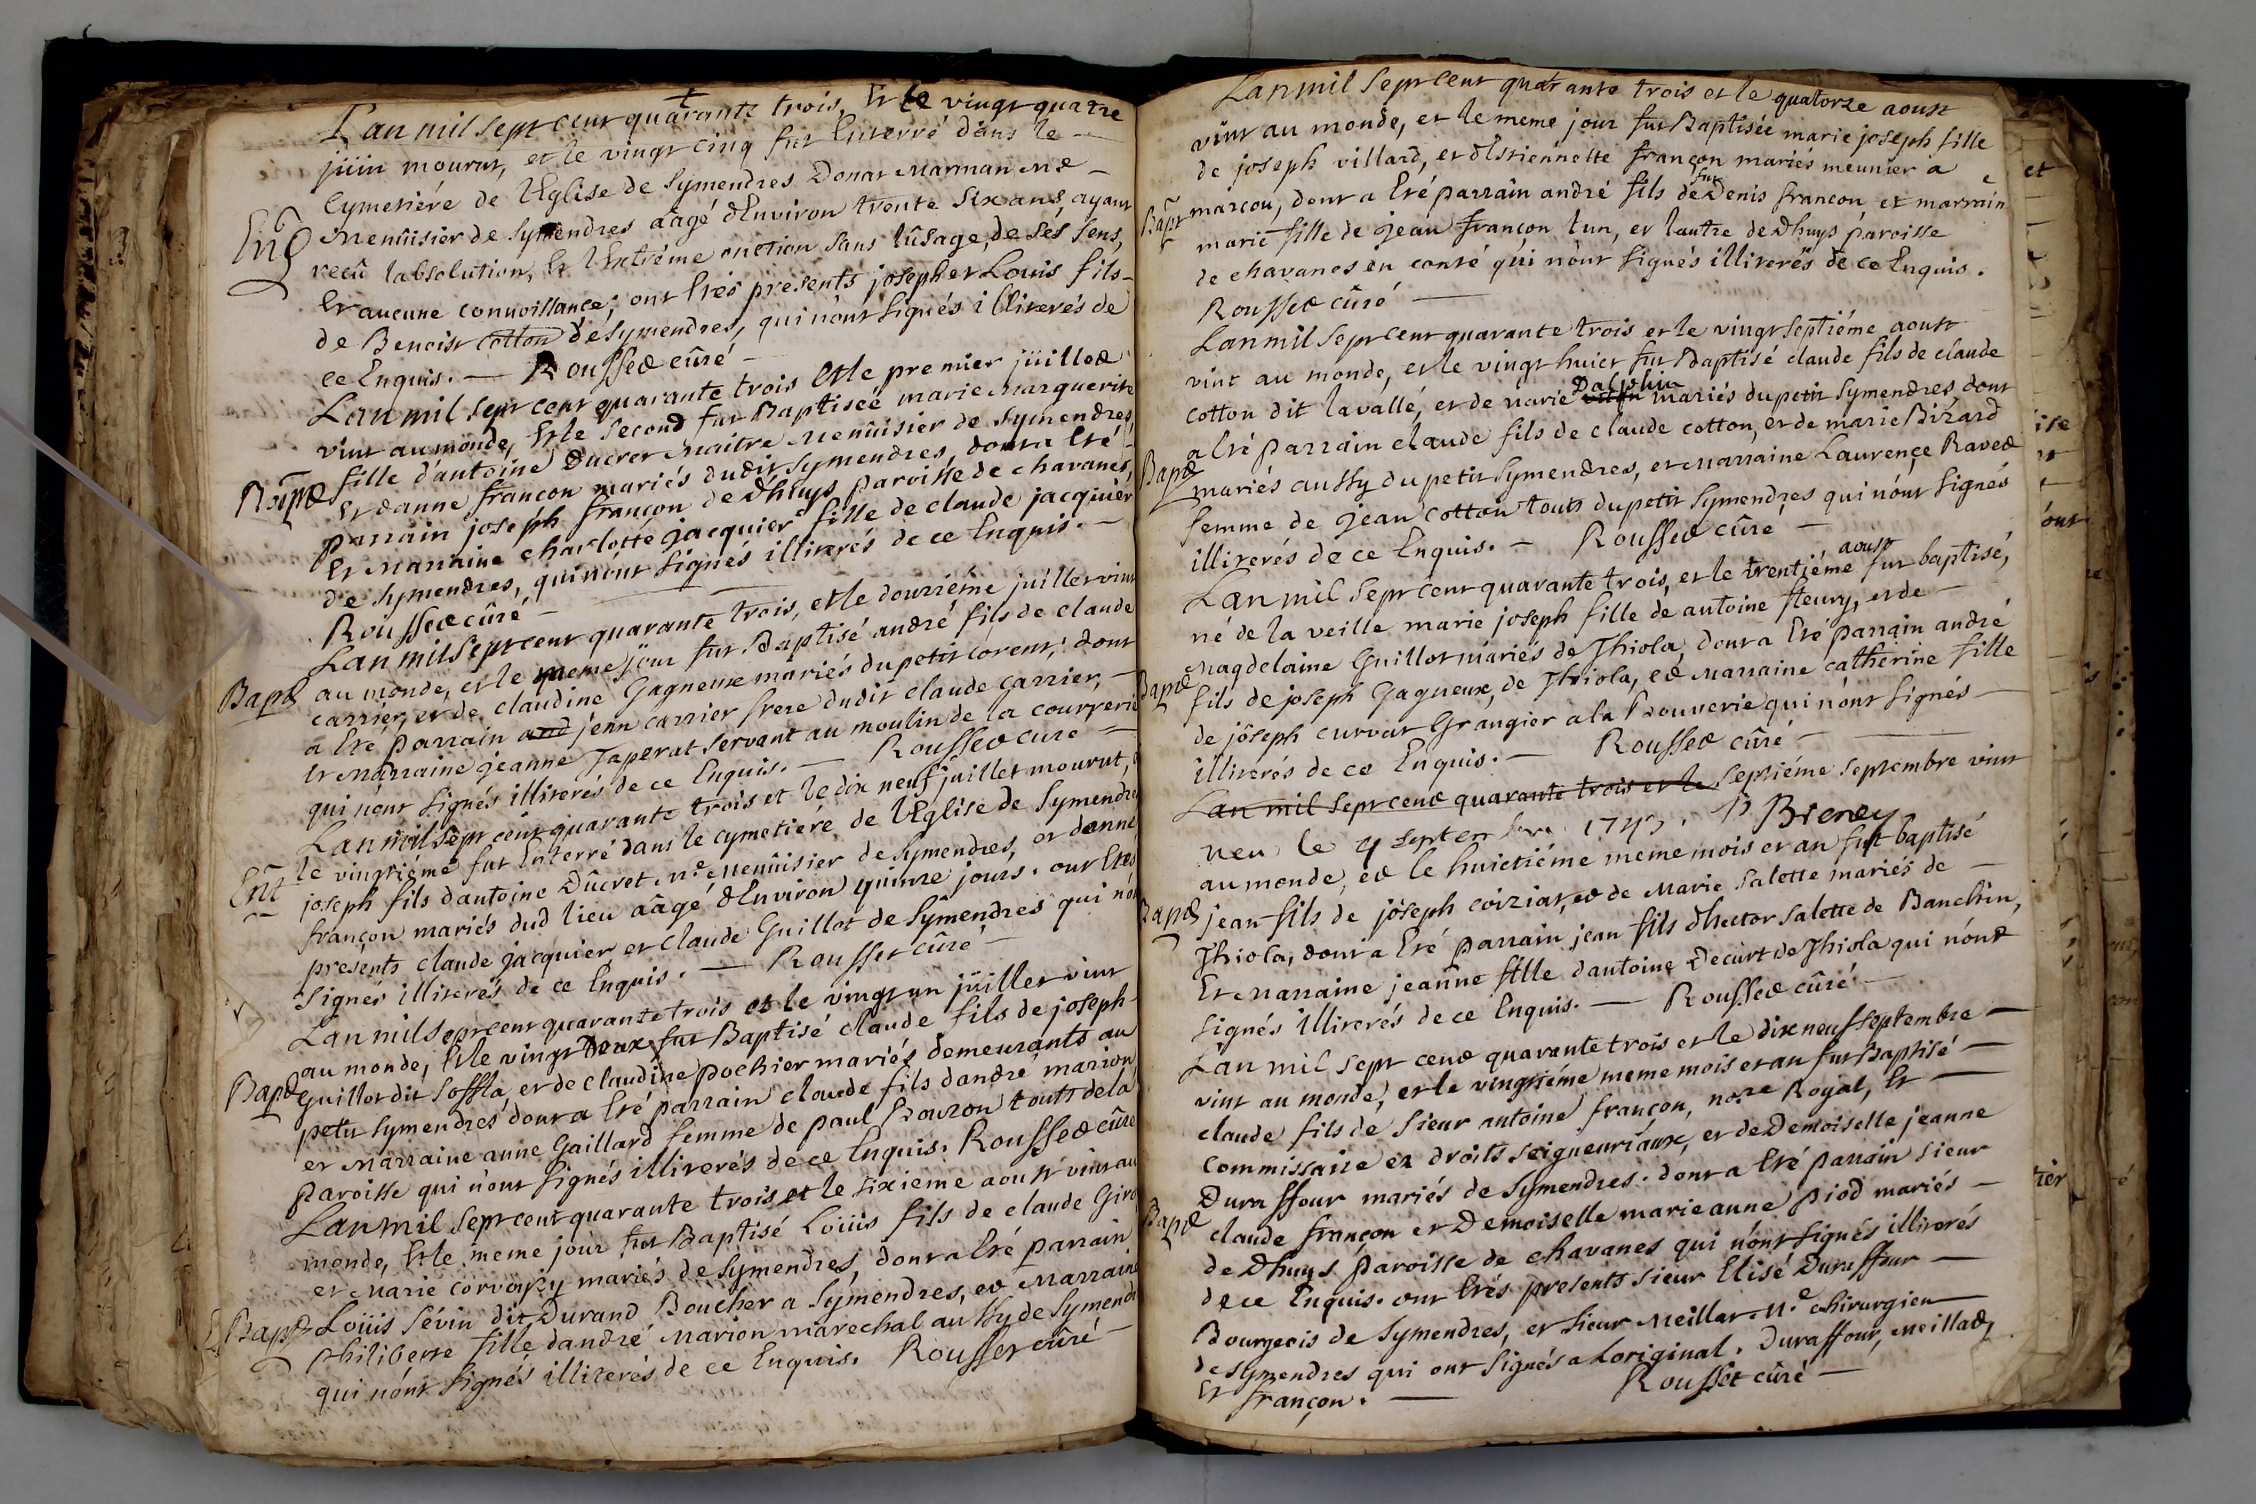 Lan mil sept cent quarante trois, Et le vingt quatre
jüin mourut, et le vingt cinq fut Enterré dans le
Cymetiére de lEglise de Symendres Donat Marman Me
Menüisier de Symendres aâgé dEnviron trente six ans, ayant
receû labsolution, Et lExtréme onction sans lûsage, de ses sens,
Et aucune connoissance; ont Etés presents joseph et Louis fils
de Benoist cotton de Symendres, qui nónt signés illiterés de
ce Enquis. — Rousset cûré —
Lan mil sept cent quarante trois Et le premier jüillet
vint au monde, Et le second fut Baptisée marie Marguerite
Bapt fille dantoine Ducret Maitre Menüisier de Symendres
Et danne françon mariés dudit Symendres, dont a Eté
parrain joseph françon de Dhuys paroisse de chavanes,
Et Marraine charlotte jacquier fille de claude jacquier
de Symendres, qui nónt signés illiterés de ce Enquis. —
Rousset cûré —
Lan mil sept cent quarante trois, et le douziéme juillet vint
Bapt au monde, et le meme jour fut Baptisé andré fils de claude
carrier, et de claudine Gagneux mariés du petit corent, dont
a Eté parrain and jean carrier frere dudit claude carrier, —
Et Marraine jeanne Taperat servant au moulin de la courrerie
qui nónt signés illiterés de ce Enquis. — Rousset cure —
Lan mil sept cent quarante trois et le dix neuf juillet mourut,
Ent le vingtiéme fut Enterré dans le cymetiére de lEglise de Symendres
joseph fils dantoine Dûcret Me Menüisier de Symendres, et danne
françon mariés dud lieu aâgé dEnviron quinze jours. ont Etés
presents claude jacquier et claude Guillot de Symendres qui nónt
signés illiterés de ce Enquis. — Rousset cûré —
Lan mil sept cent quarante trois et le vingt un jüillet vint
au monde, Et le vingt Deux fut Baptisé claude fils de joseph
Bapt Guillot dit Soffla, et de claudine pochier mariés demeurants au
petit Symendres dont a Eté parrain claude fils dandré marion
et Marraine anne Gaillard femme de paul Bouzon touts de la
paroisse qui nónt signés illiterés de ce Enquis. Rousset cûré
Lan mil sept cent quarante trois et le sixieme aoust vint au
monde, Et le meme jour fut Baptisé Loüis fils de claude
et Marie mariés de Symendres, dont a Eté parrain
Bapt Loüis Sévin dit Durand Boucher a Symendres, et Marraine
philiberte fille dandré Marion marechal aussy de Symendres
qui nónt signés illiterés de ce Enquis. Rousset cûré —
Lan mil sept cent quarante trois et le quatorze aoust
vint au monde, et le meme jour fut Baptisée marie joseph fille
de joseph villard, et dEstiennette françon mariés meunier a
Bapt marcou, dont a Eté parrain andré fils de fut Denis françon et marraine
marie fille de jean françon lun, et lautre de Dhuys paroisse
de chavanes en conté qui nónt signés illiterés de ce Enquis.
Rousset cûré —
Lan mil sept cent quarante trois et le vingt septiéme aoust
vint au monde, et le vingt huict fut Baptisé claude fils de claude
cotton dit lavallé, et de marie Dalphin mariés du petit Symendres, dont
a Eté parrain claude fils de claude cotton, et de marie Bizard
Bapt mariés aussy du petit Symendres, et Marraine Laurençe Ravet
femme de jean cotton touts du petit Symendres qui nónt signés
illiterés de ce Enquis. — Rousset cûré —
Lan mil sept cent quarante trois, et le trentiéme aoust fut baptisé,
né de la veille marie joseph fille de antoine fleury, et de —
Magdelaine Guillot mariés de Thiola, dont a Eté parrain andré
Bapt fils de joseph Gagneux, de Thiola, et Marraine catherine fille
de jôseph curvat Grangier a la Bouverie qui nónt signés —
illiterés de ce Enquis. — Rousset cûré —
Lan mil sept cent quarante trois et le septiéme septembre vint
veu le 7 septembre 1743.
au monde, et le huictiéme meme mois et an fut baptisé
Bapt jean fils de jôseph coiziat, et de Marie Salette mariés de —
Thiola, dont a Eté parrain jean fils dhector Salette de Banchin,
Et Marraine jeanne fille dantoine Decurt de Thiola qui nónt
signés illiterés de ce Enquis. — Rousset cûré —
Lan mil sept cent quarante trois et le dix neuf septembre —
vint au monde, et le vingtiéme meme mois et an fut Baptisé —
claude fils de Sieur antoine françon, nore Royal, Et —
Commissaire ez droits seigneuriaux, et de Demoiselle jeanne
Duraffour mariés de Symendres. dont a Eté parrain Sieur
Bapt claude françon et Demoiselle marie anne piod mariés —
de Dhuys paroisse de chavanes qui nónt signés illiterés
de ce Enquis. ont Etés presents sieur Elisé Duraffour —
Bourgeois de Symendres, et sieur Meillat Me chirurgien
de symendres qui ont signés a Loriginal. Duraffour, Meillat,
Et françon. — Rousset cûré —